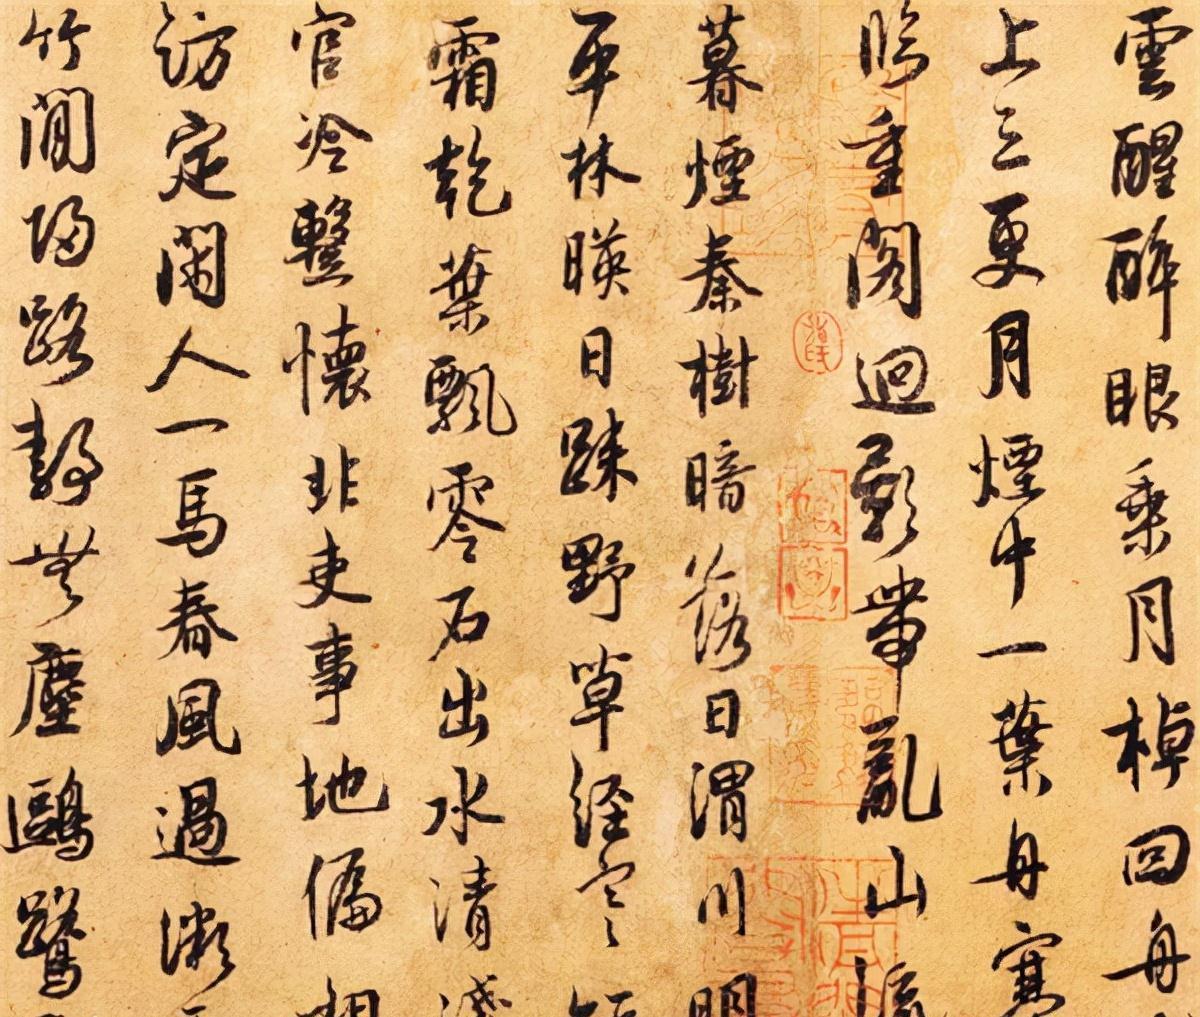 雲醒醉眼乘月棹回舟
上三更月煙中一葉舟寒
臨重閣迥影帶亂山
暮煙秦樹暗落日渭川明
平林暎日踈野草經寒
霜乾葉飄零石出水清淺
官冷整懷非吏事地偏
訪定閑人一馬春風過
竹間歸路靜無塵鷗鷺